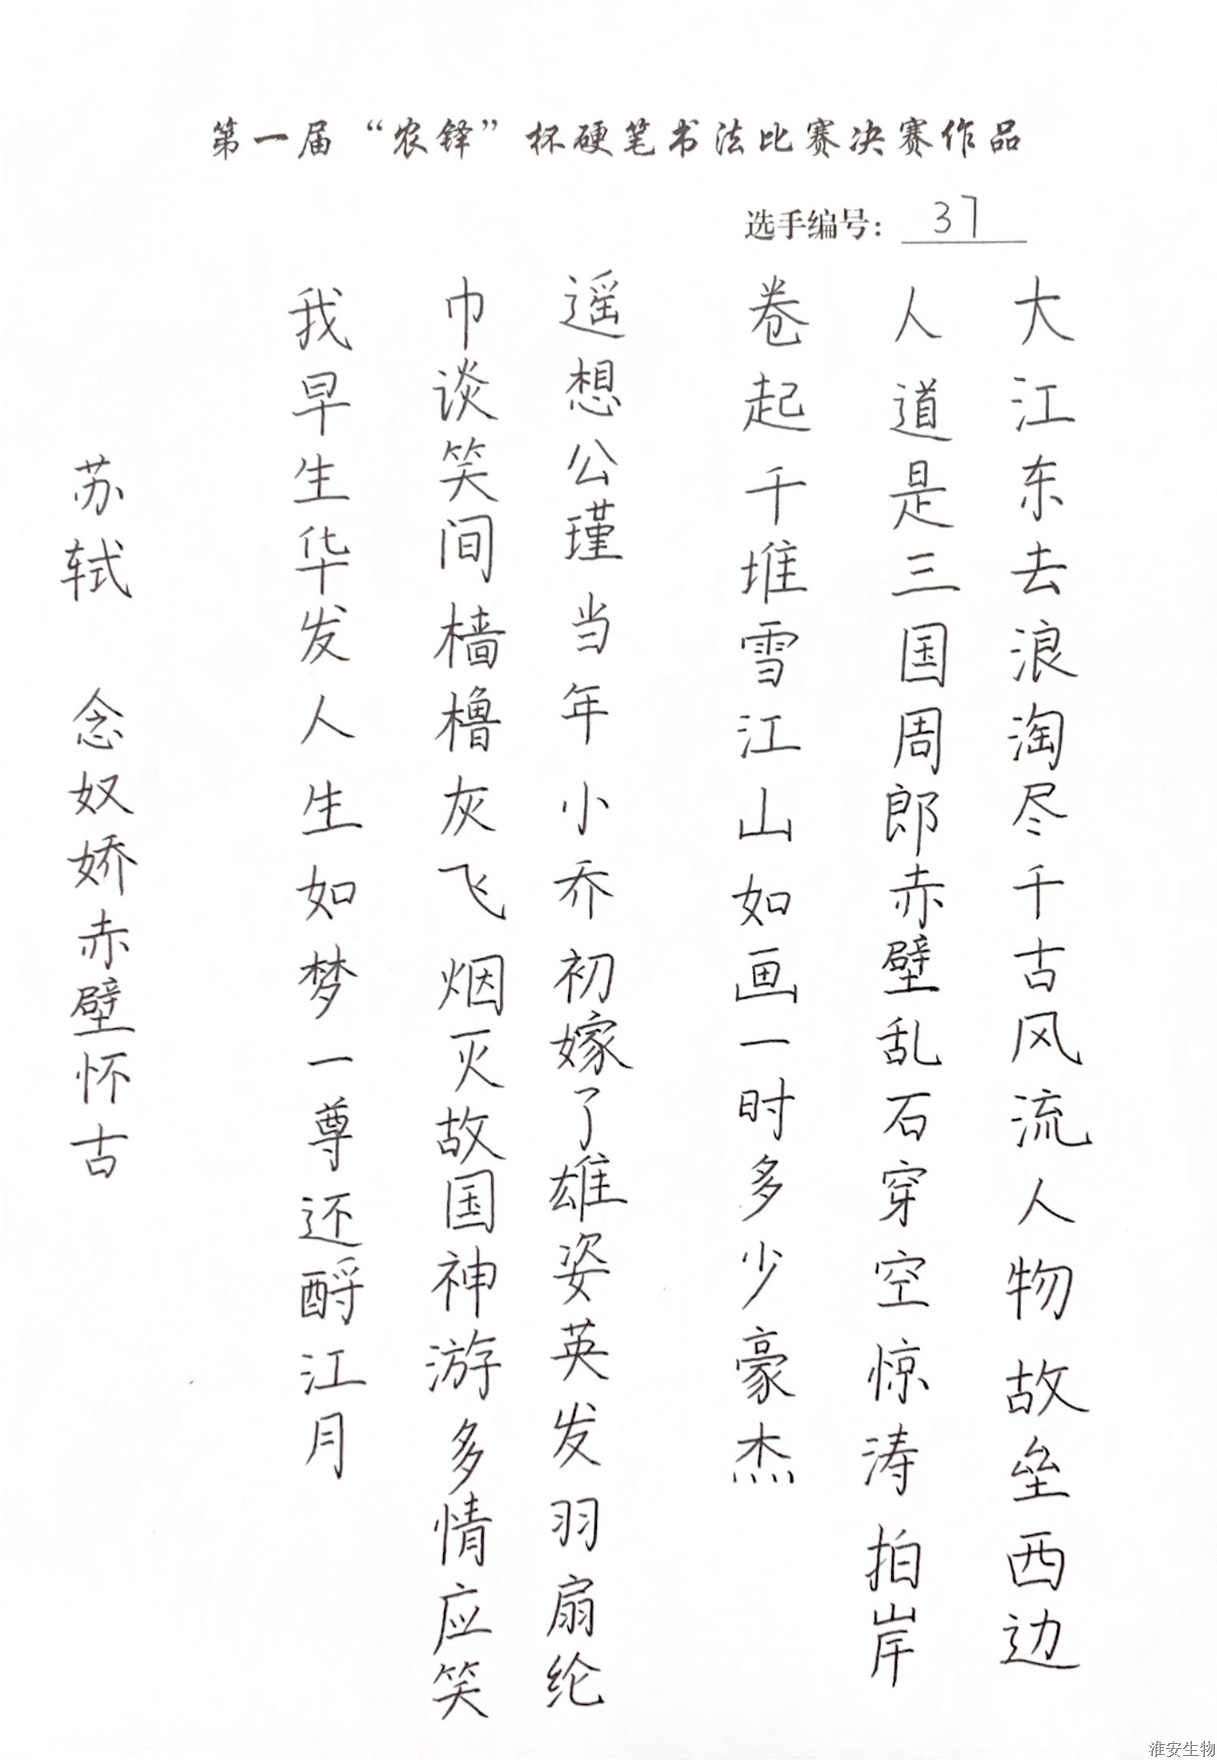 第一届“农铎”杯硬笔书法比赛决赛作品
选手编号：37
大江东去浪淘尽千古风流人物故垒西边
人道是三国周郎赤壁乱石穿空惊涛拍岸
卷起千堆雪江山如画一时多少豪杰
遥想公瑾当年小乔初嫁了雄姿英发羽扇纶
巾谈笑间樯橹灰飞烟灭故国神游多情应笑
我早生华发人生如梦一尊还酹江月
苏轼 念奴娇赤壁怀古
淮安生物